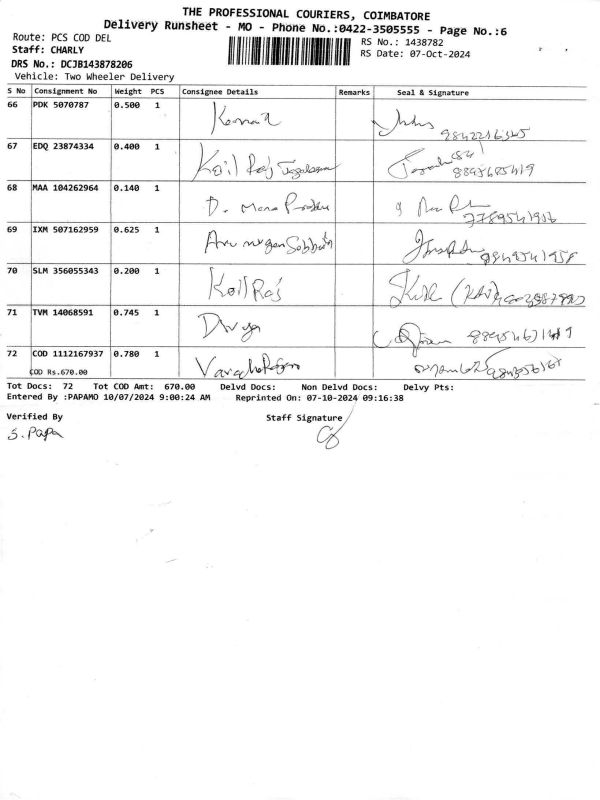 THE PROFESSIONAL COURIERS, COIMBATORE
Delivery Runsheet - MO - Phone No.:0422-3505555 - Page No.:6
Route: PCS COD DEL
RS No.: 1438782
Staff: CHARLY
RS Date: 07-Oct-2024
DRS No.: DCJB143878206
Vehicle: Two Wheeler Delivery
S No Consignment No Weight PCS Consignee Details Remarks Seal & Signature
66 PDK 5070787 0.500 1
67 EDQ 23874334 0.400 1 Koil Raj
68 MAA 104262964 0.140 1 D. Mano
69 IXM 507162959 0.625 1
70 SLM 356055343 0.200 1 Koil Raj
71 TVM 14068591 0.745 1 Divya
72 COD 1112167937 0.780 1
COD Rs.670.00
Tot Docs: 72 Tot COD Amt: 670.00 Delvd Docs: Non Delvd Docs: Delvy Pts:
Entered By :PAPAMO 10/07/2024 9:00:24 AM Reprinted On: 07-10-2024 09:16:38
Verified By Staff Signature
S. Papa